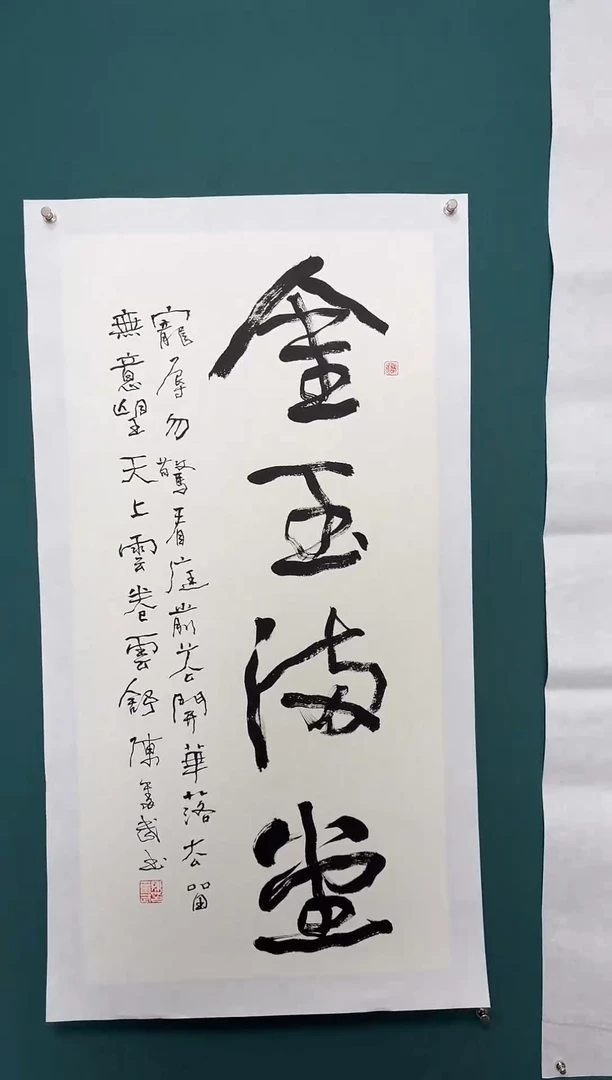 金玉满堂
寵辱勿驚看庭前花開華落去留
無意望天上雲卷雲舒 陳 武书